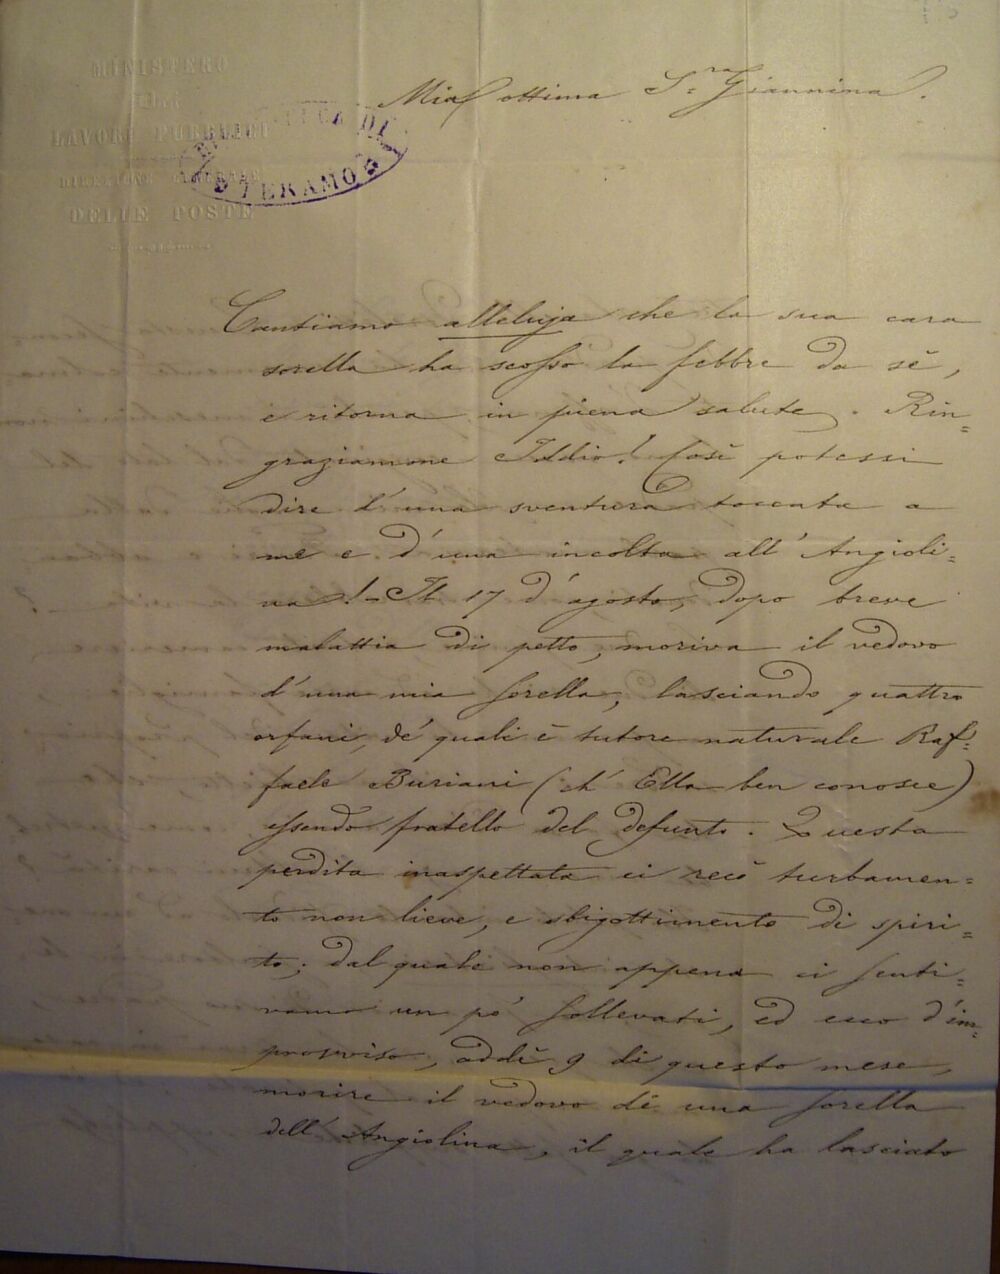 MINISTERO
DEI
LAVORI PUBBLICI
DIREZIONE GENERALE
DELLE POSTE
BIBLIOTECA DI
TERAMO
Mia ottima S.ra Giannina.
Cantiamo alleluja che la sua cara
sorella ha scosso la febbre da sè,
e ritorna in piena salute. Rin=
graziamone Iddio! Così potessi
dire d'una sventura toccata a
me e d'una incolta all'Angioli=
na! - Il 17 d'agosto, dopo breve
malattia di petto, moriva il vedovo
d'una mia sorella, lasciando quattro
orfani, de' quali è tutore naturale Raf=
faele Buriani (ch'Ella ben conosce)
essendo fratello del defunto. Questa
perdita inaspettata ci recò turbamen=
to non lieve, e sbigottimento di spiri=
to; dal quale non appena ci senti=
vamo un pò sollevati, ed ecco d'im=
provviso, addì 9 di questo mese,
morire il vedovo di una sorella
dell'Angiolina, il quale ha lasciato